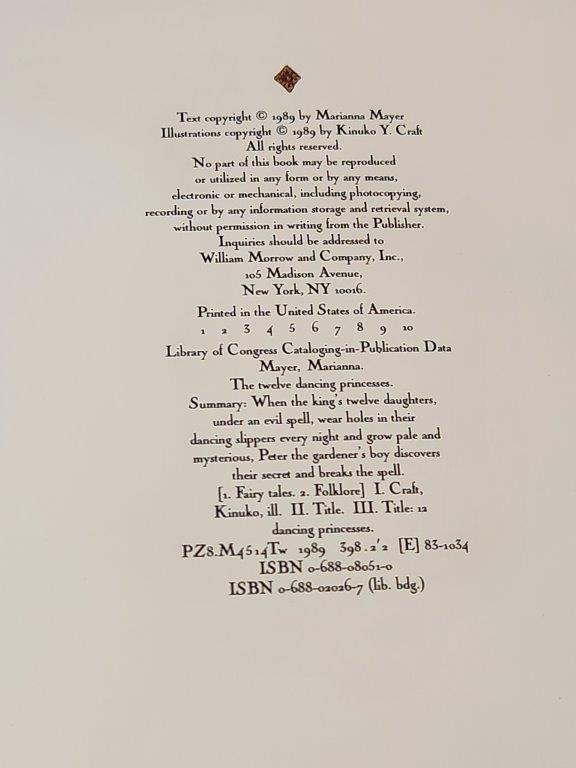 Text copyright © 1989 by Marianna Mayer
Illustrations copyright © 1989 by Kinuko Y. Craft
All rights reserved.
No part of this book may be reproduced
or utilized in any form or by any means,
electronic or mechanical, including photocopying,
recording or by any information storage and retrieval system,
without permission in writing from the Publisher.
Inquiries should be addressed to
William Morrow and Company, Inc.,
105 Madison Avenue,
New York, NY 10016.
Printed in the United States of America.
1 2 3 4 5 6 7 8 9 10
Library of Congress Cataloging-in-Publication Data
Mayer, Marianna.
The twelve dancing princesses.
Summary: When the king's twelve daughters,
under an evil spell, wear holes in their
dancing slippers every night and grow pale and
mysterious, Peter the gardener's boy discovers
their secret and breaks the spell.
[1. Fairy tales. 2. Folklore] I. Craft,
Kinuko, ill. II. Title. III. Title: 12
dancing princesses.
PZ8.M4514Tw 1989 398.2'2 [E] 83-1034
ISBN 0-688-08051-0
ISBN 0-688-02026-7 (lib. bdg.)